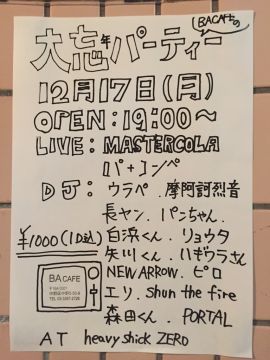 BACAFEの
大忘年パーティー
12月17日(月)
OPEN:19:00〜
LIVE:MASTERCOLA
パ+コンペ
DJ:ウラペ.摩阿訶烈音
長ヤン.パンちゃん.
¥1000(1D込)
白浜くん.リョウタ
矢川くん.ハギウラさん
NEW ARROW.ピロ
エリ.shun the fire
森田くん.PORTAL
BA CAFE
AT heavy shick ZERO